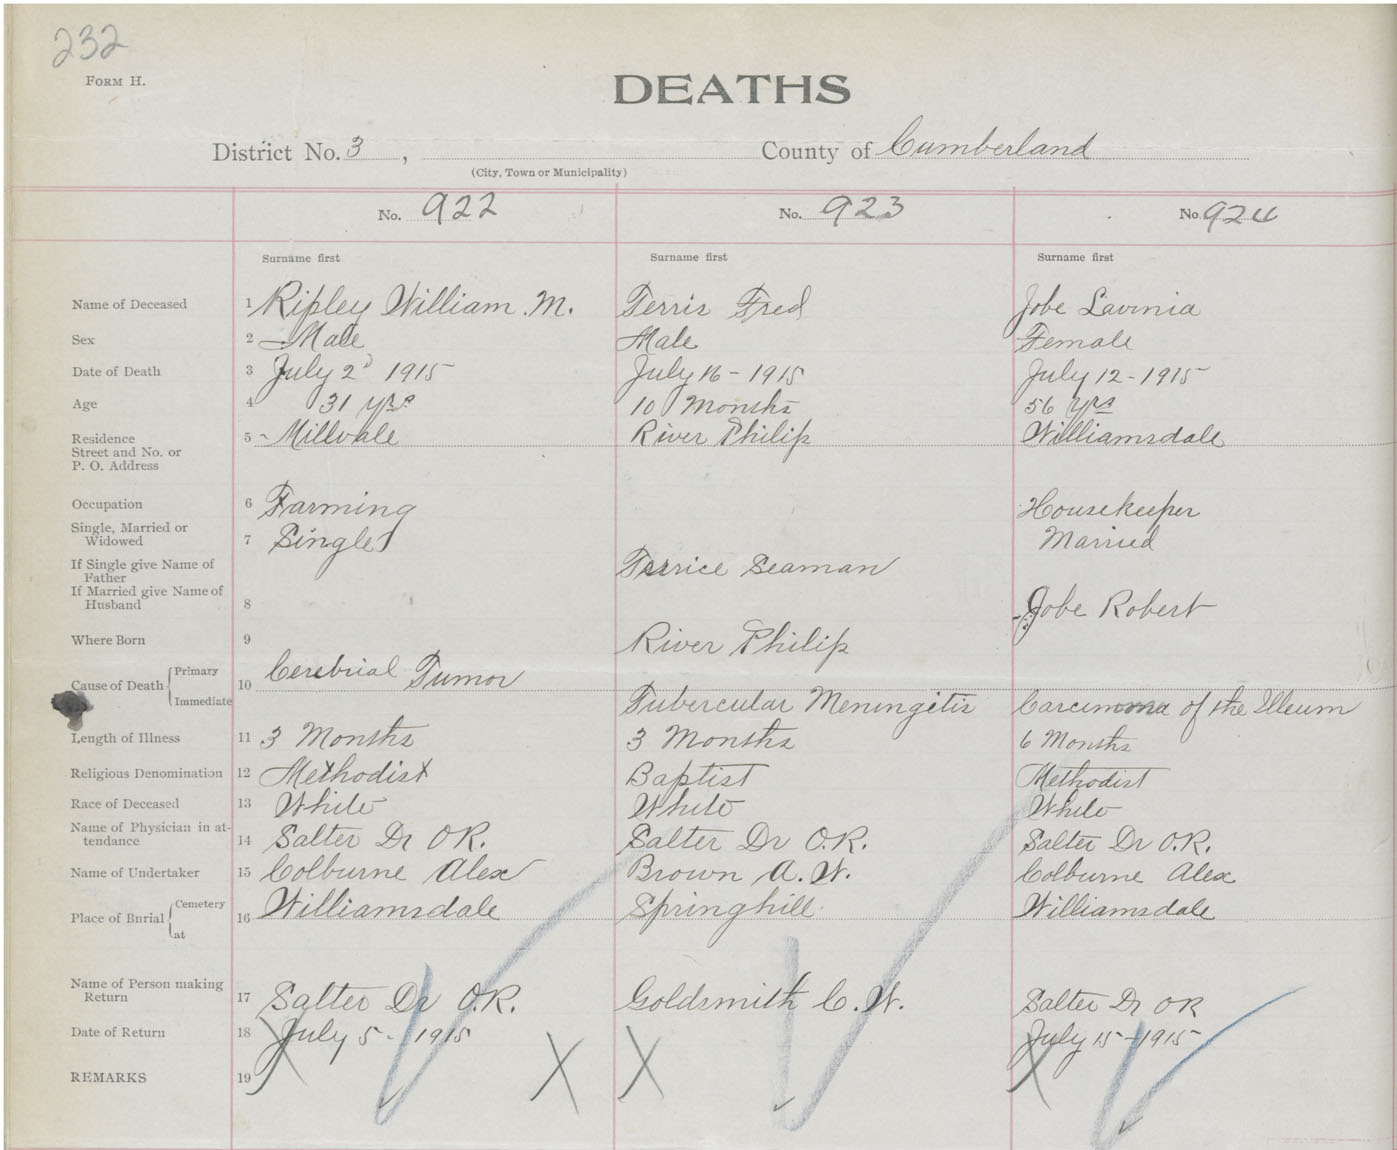 232
FORM H.
DEATHS
District No. 3 , County of Cumberland
(City, Town or Municipality)
No. 922 No. 923 No. 924
Surname first Surname first Surname first
Name of Deceased 1 Ripley William M. Terris Fred Jobe Lavinia
Sex 2 Male Male Female
Date of Death 3 July 2d 1915 July 16 - 1915 July 12 - 1915
Age 4 31 yrs 10 Months 56 yrs
Residence 5 Millvale River Philip Williamsdale
Street and No. or
P. O. Address
Occupation 6 Farming Housekeeper
Single, Married or
Widowed 7 Single Married
If Single give Name of
Father Seaman
If Married give Name of
Husband 8 Jobe Robert
Where Born 9 River Philip
Cause of Death Primary 10 Cerebrial Tumor
Immediate Tubercular Meningitis Carcinoma of the Illeum
Length of Illness 11 3 Months 3 Months 6 Months
Religious Denomination 12 Methodist Baptist Methodist
Race of Deceased 13 White White White
Name of Physician in at-
tendance 14 Salter Dr O R. Salter Dr O.R. Salter Dr O.R.
Name of Undertaker 15 Colburne Alex Brown A. W. Colburne Alex
Place of Burial Cemetery 16 Williamsdale Springhill Williamsdale
at
Name of Person making
Return 17 Salter Dr O.R. Goldsmith C. W. Salter Dr O R
Date of Return 18 July 5 - 1915 July 15 - 1915
REMARKS 19 X X X X